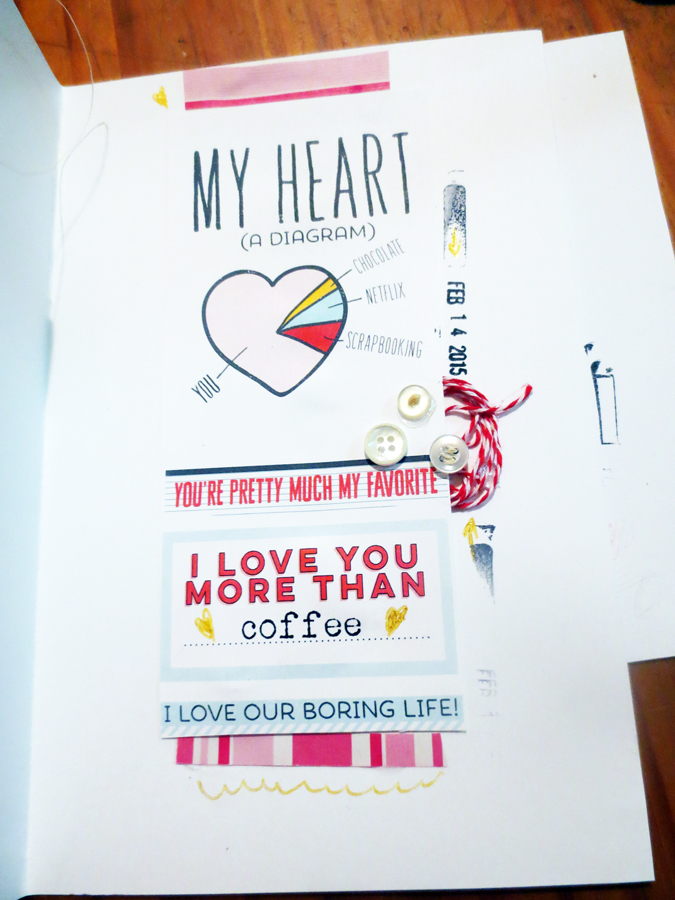 MY HEART
(A DIAGRAM)
CHOCOLATE
NETFLIX
SCRAPBOOKING
YOU
FEB 14 2015
YOU'RE PRETTY MUCH MY FAVORITE
I LOVE YOU
MORE THAN
coffee
I LOVE OUR BORING LIFE!
FEB